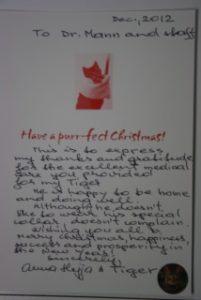 Dec., 2012
To Dr. Mann and staff
Have a purr-fect Christmas!
This is to express
my thanks and gratitude
for the excellent medical
care you provided
for my Tiger.
He is happy to be home
and doing well.
Although he doesn't
like to wear his special
collar doesn't complain.
Wishing you all a
Merry Christmas, happiness,
success and prosperity in
the New Year!
Sincerely,
Anna & Tiger